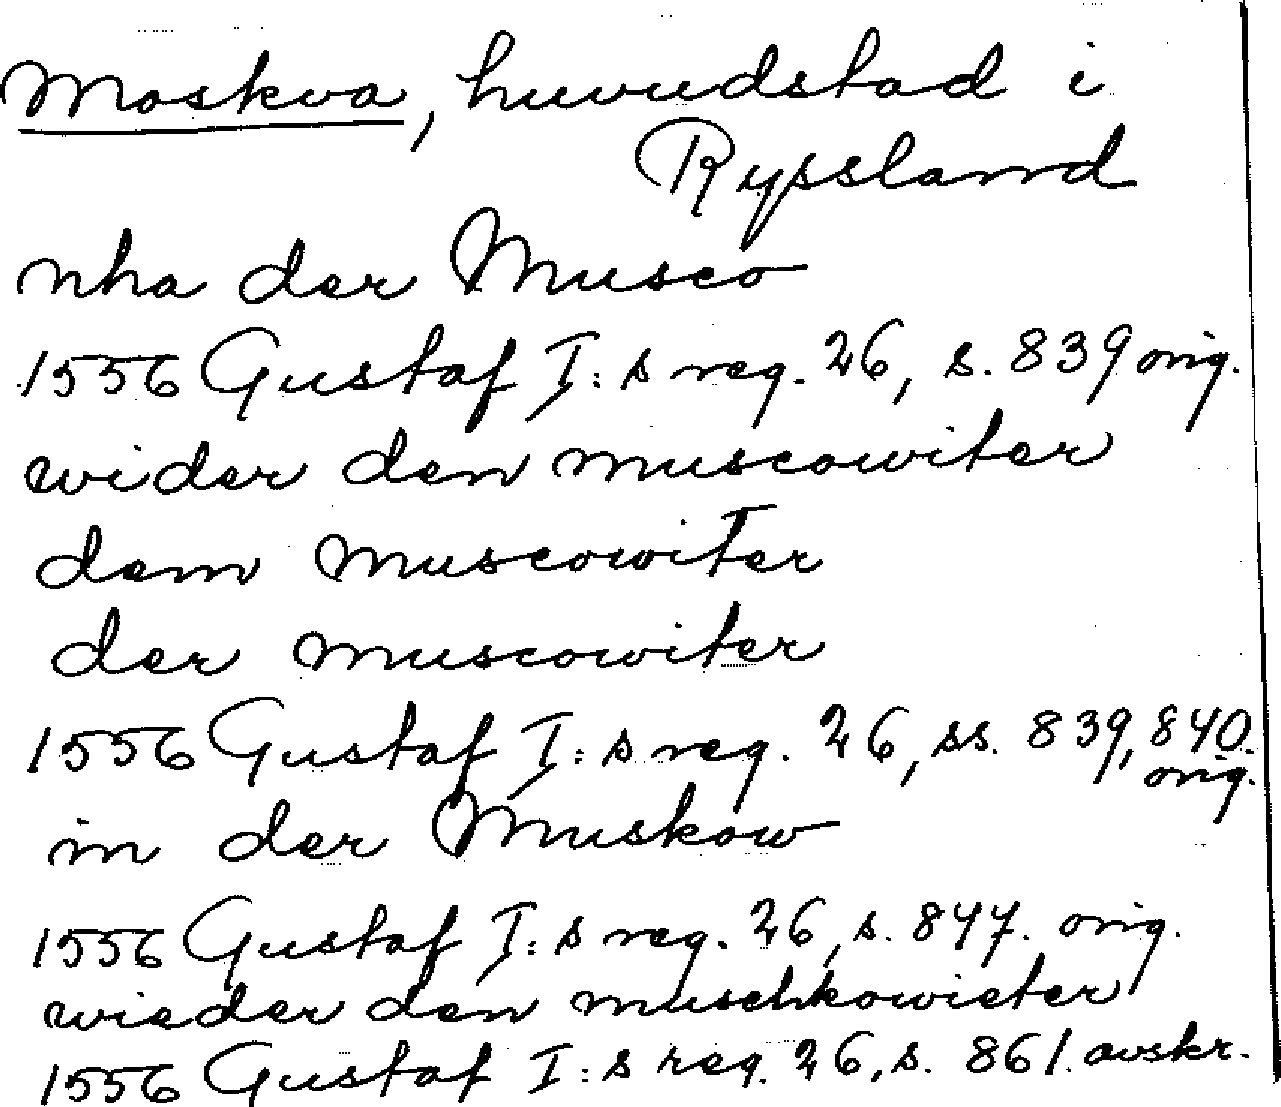 Moskva, huvudstad i
Ryssland
nha der Musco
1556 Gustaf I:s reg. 26, s. 839 orig.
wider den muscowiter
dem muscowiter
der muscowiter
1556 Gustaf I:s reg. 26, ss. 839, 840.
orig.
in der Muskow
1556 Gustaf I:s reg. 26, s. 847. orig.
wieder den muschkowieter
1556 Gustaf I:s reg. 26, s. 861. avskr.